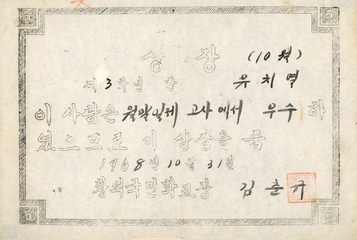 상장
(10월)
제 3학년 반 유치열
이 사람은 월말일제 고사에서 우수 하
였으므로 이 상장을 줌
1968년 10월 31일
국민학교장 김춘규